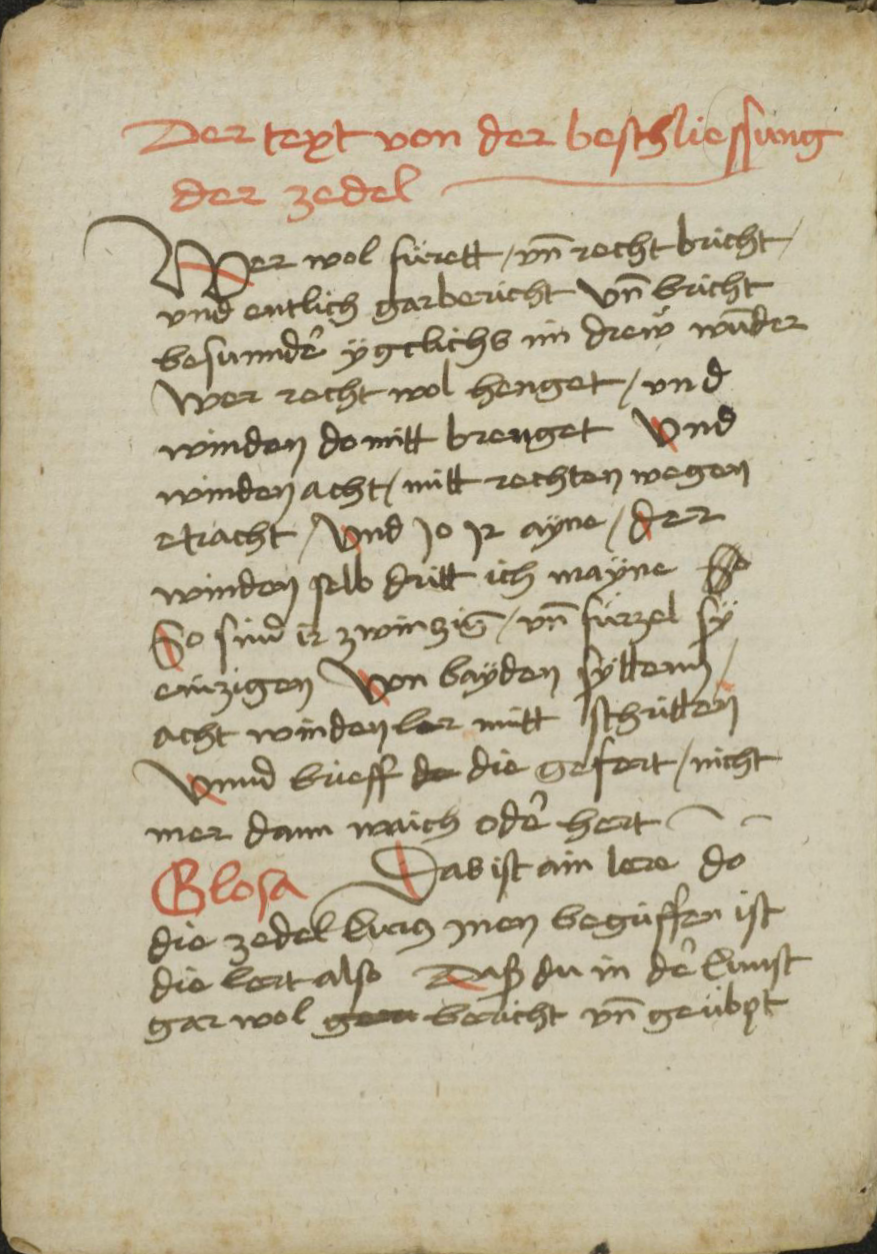 Der text von der beschliessung
der zedel
Wer wol fürett / vn̄ recht bricht /
vnd entlich gar bericht Vn̄ bricht
besunnder̄ ÿgclichs im dreẅ wūder
Wer recht wol henget / vnd
winden do mitt brenget Vnd
winden acht / mitt rechten wegen
etracht / Vnd Jo Jr ayne / der
winden selb dritt ich mayne So
So sind ir zwinziḡ / vn̄ fürzel sÿ
einzigen Von bayden sytten /
acht winden ler mitt schritten
Vnnd brieff de die gefert / nicht
mer dann waich oder̄ hert
Glosa Das ist ain lere do
die zedel kurcz Jnen begriffen ist
die lert also Daß du in der̄ kunst
gar wol gern bericht vn̄ geübpt